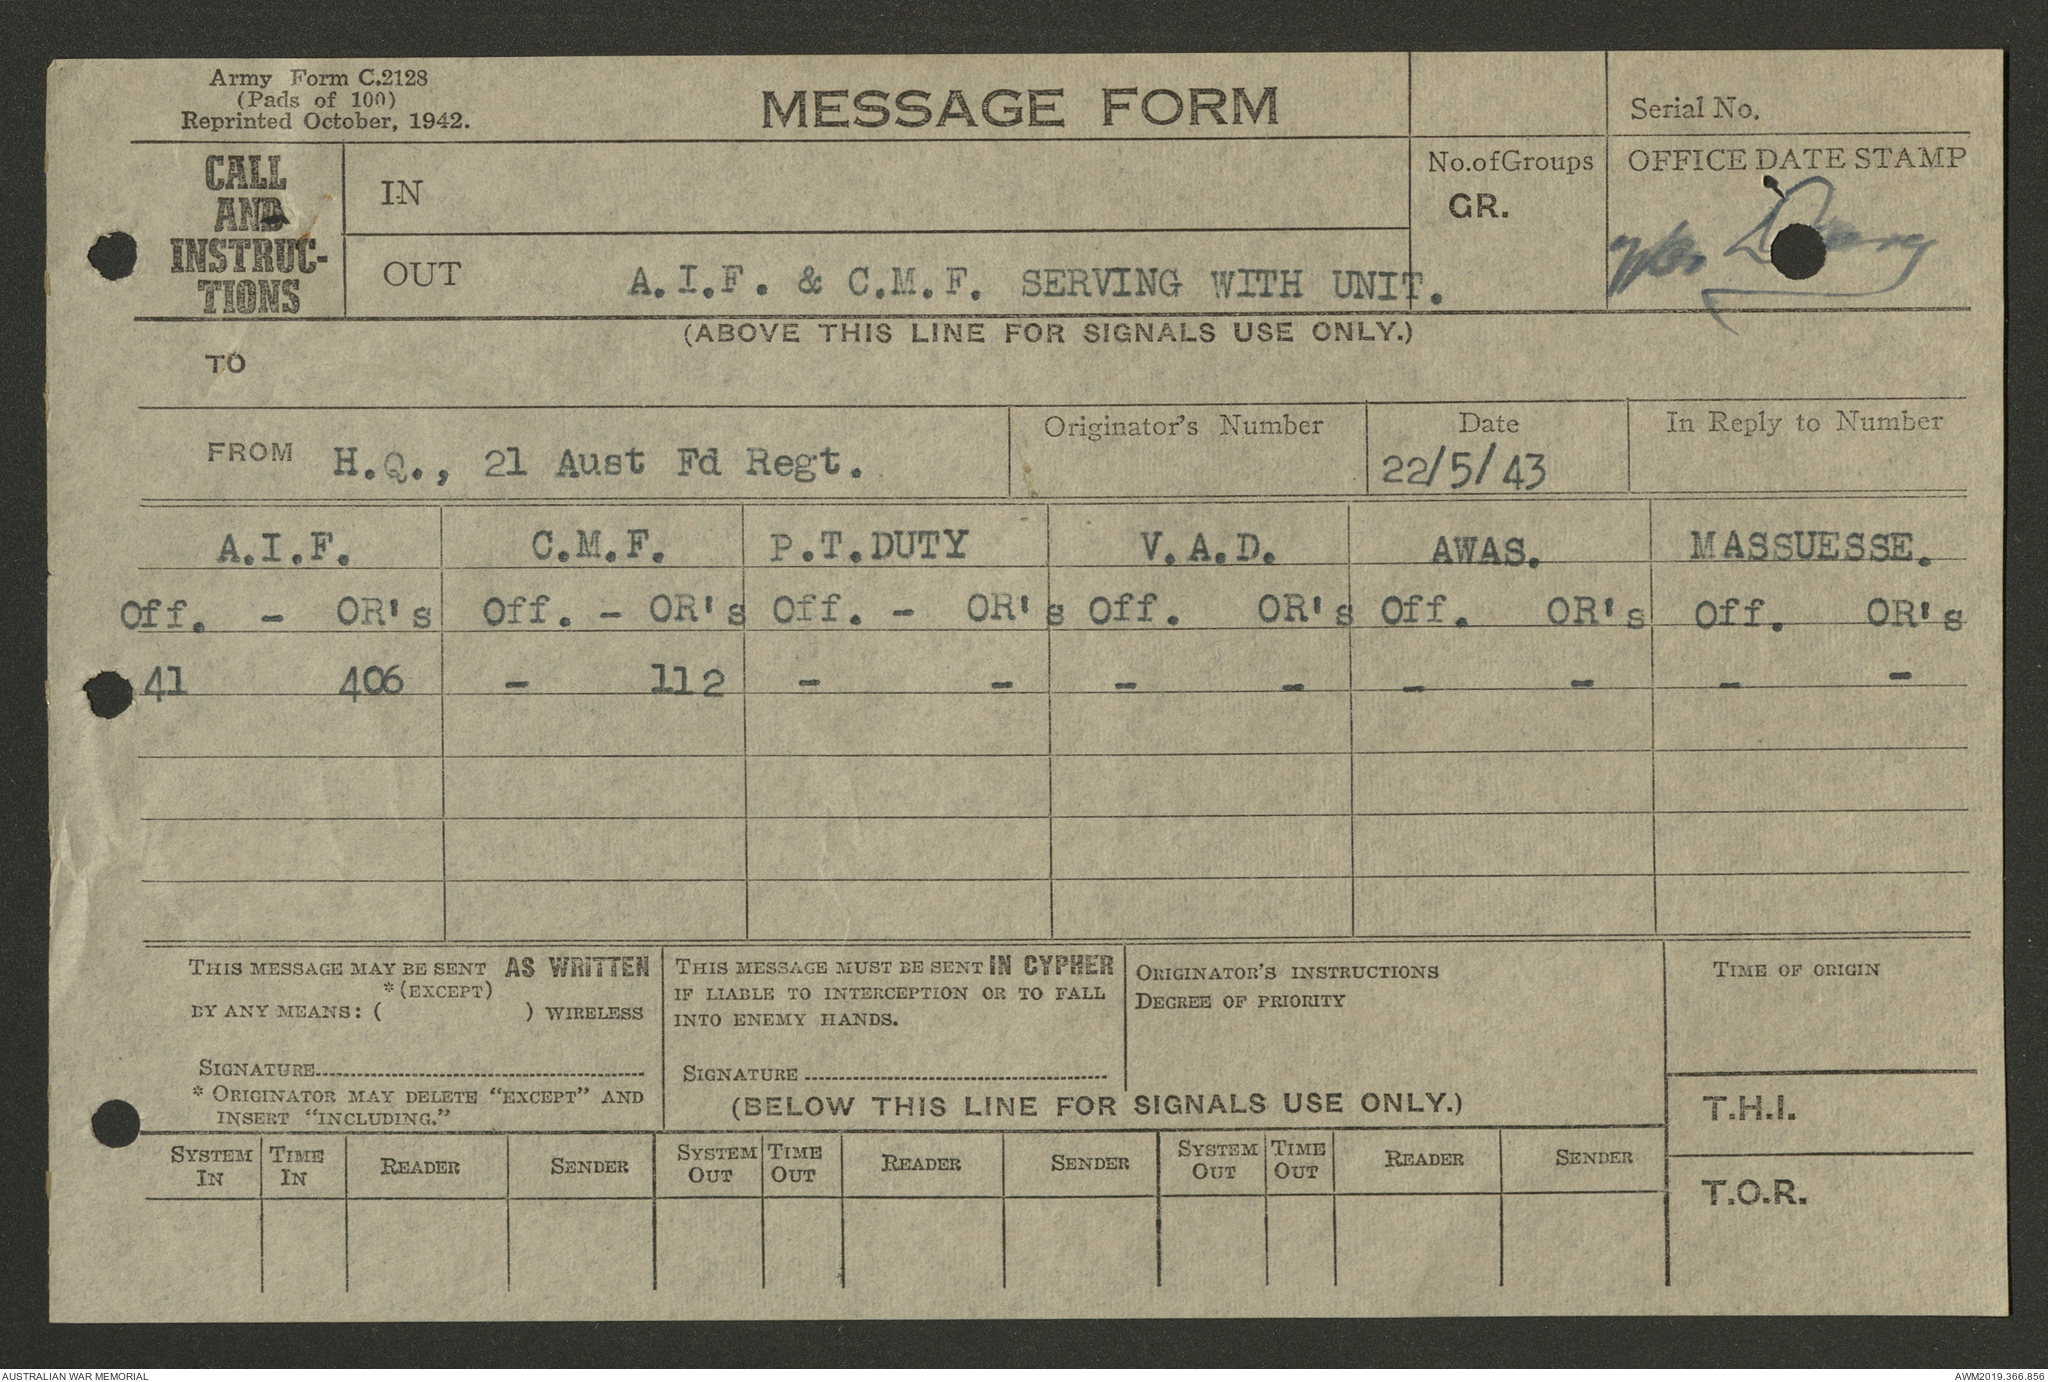 Army Form C.2128
(Pads of 100)
Reprinted October, 1942.
MESSAGE FORM
Serial No.
CALL
AND
INSTRUC-
TIONS
IN
No.of Groups
GR.
OFFICE DATE STAMP
OUT
A.I.F. & C.M.F. SERVING WITH UNIT.
(ABOVE THIS LINE FOR SIGNALS USE ONLY.)
TO
FROM H.Q., 21 Aust Fd Regt.
Originator's Number
Date
22/5/43
In Reply to Number
A.I.F. C.M.F. P.T.DUTY V.A.D. AWAS. MASSUESSE.
Off. - OR's Off. - OR's Off. - OR's Off. OR's Off. OR's Off. OR's
41 406 - 112 - - - - - - - -
THIS MESSAGE MAY BE SENT AS WRITTEN
*(EXCEPT)
BY ANY MEANS: ( ) WIRELESS
SIGNATURE
* ORIGINATOR MAY DELETE "EXCEPT" AND
INSERT "INCLUDING."
THIS MESSAGE MUST BE SENT IN CYPHER
IF LIABLE TO INTERCEPTION OR TO FALL
INTO ENEMY HANDS.
SIGNATURE
ORIGINATOR'S INSTRUCTIONS
DEGREE OF PRIORITY
TIME OF ORIGIN
(BELOW THIS LINE FOR SIGNALS USE ONLY.)
T.H.I.
SYSTEM IN
TIME IN
READER
SENDER
SYSTEM OUT
TIME OUT
READER
SENDER
SYSTEM OUT
TIME OUT
READER
SENDER
T.O.R.
AUSTRALIAN WAR MEMORIAL
AWM2019.366.856